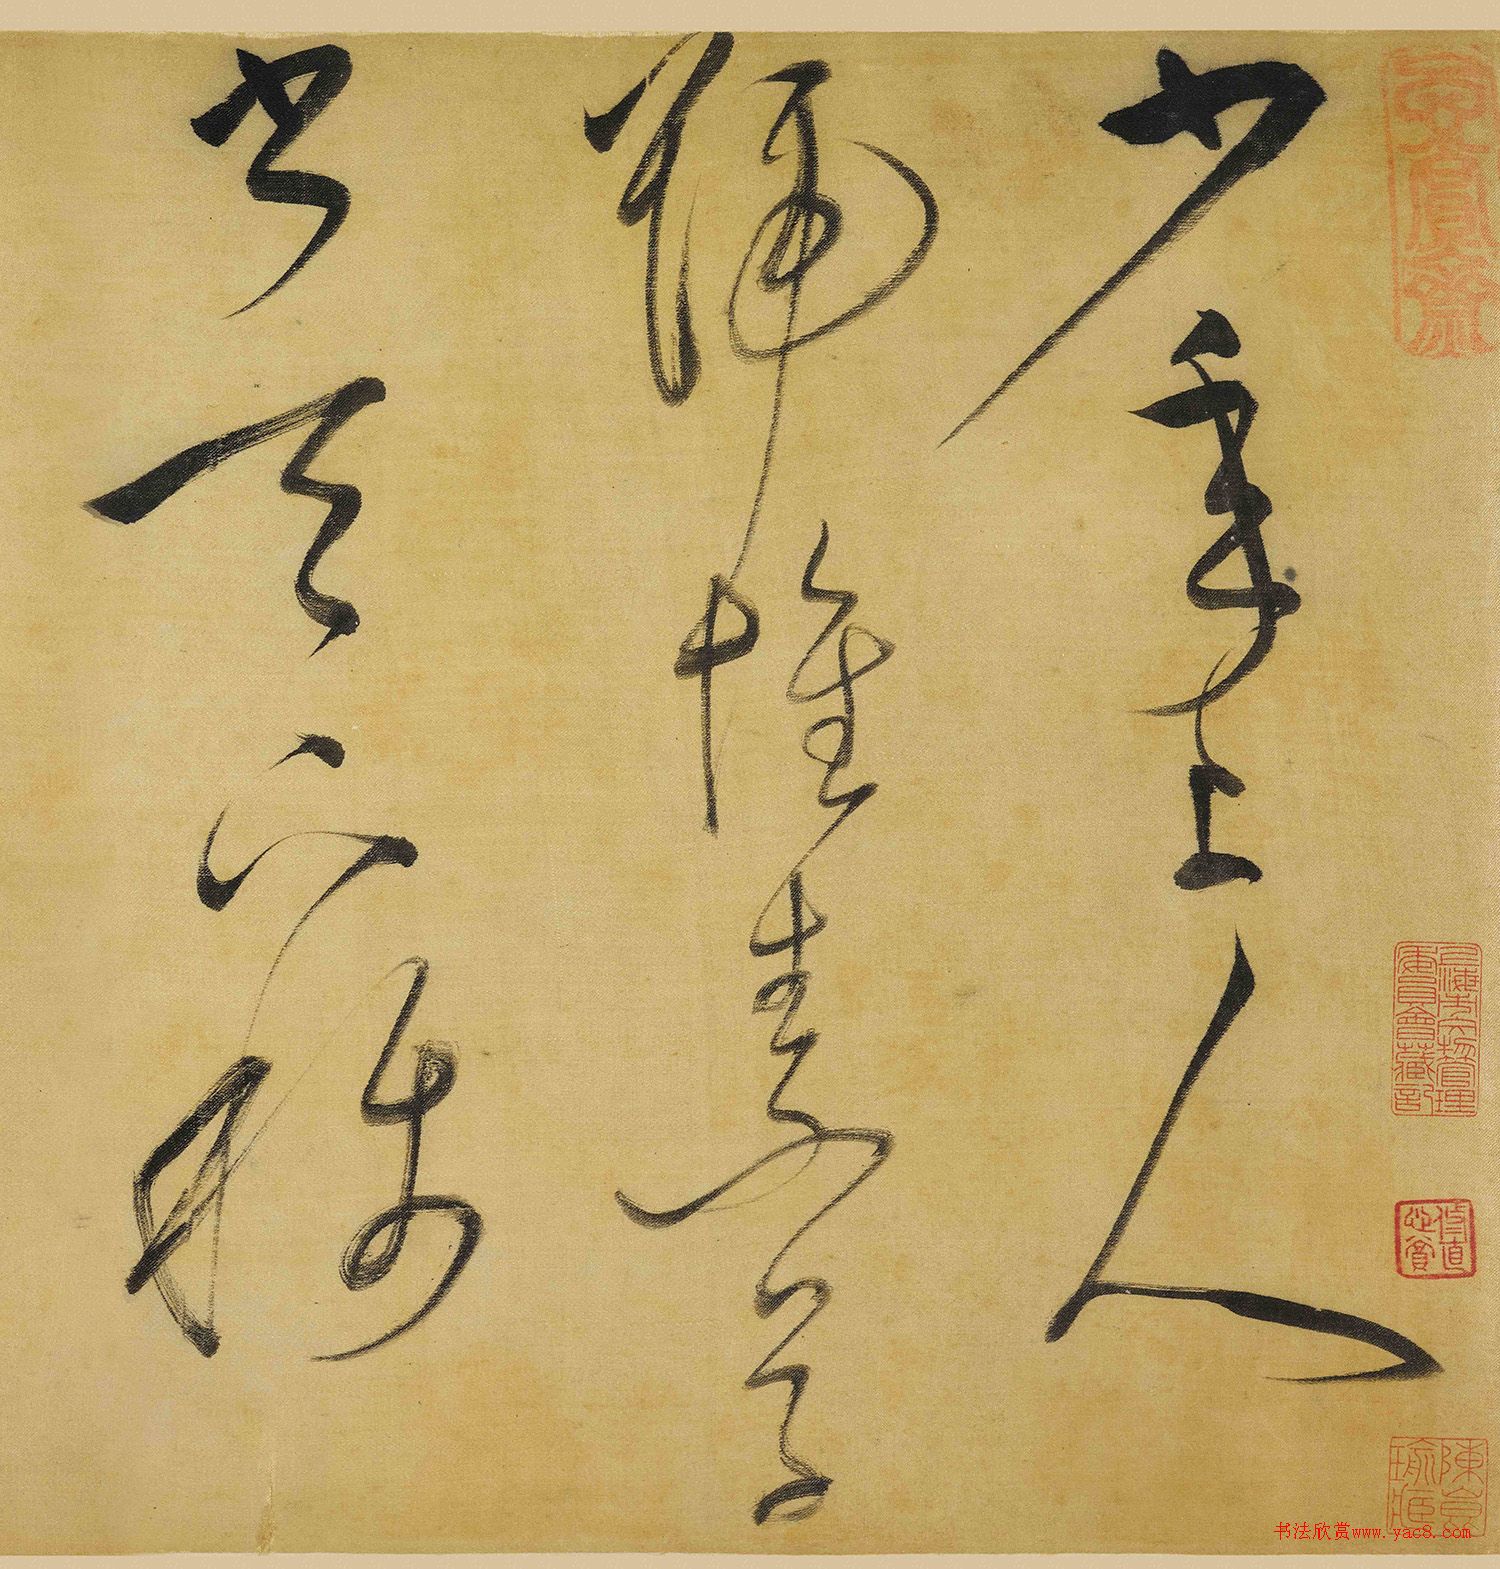 少年上人
号懷素草
書天下稱
書法欣賞www.yac8.com